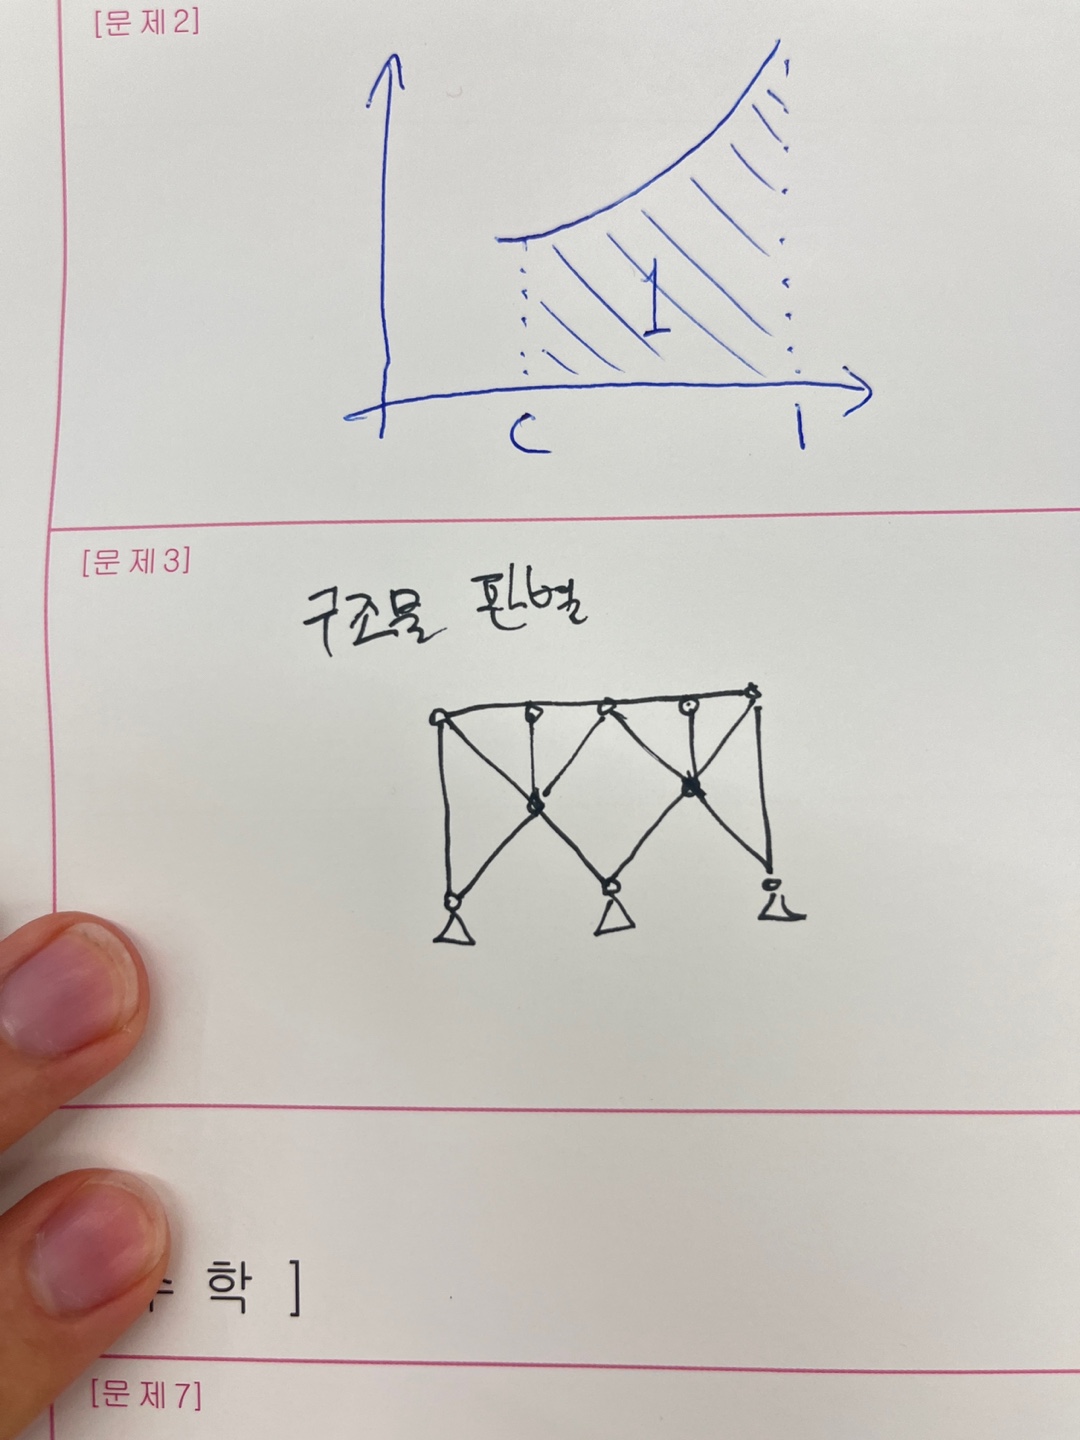 [문제2]
1
C
1
[문제3]
구조물 판별
수 학 ]
[문제7]